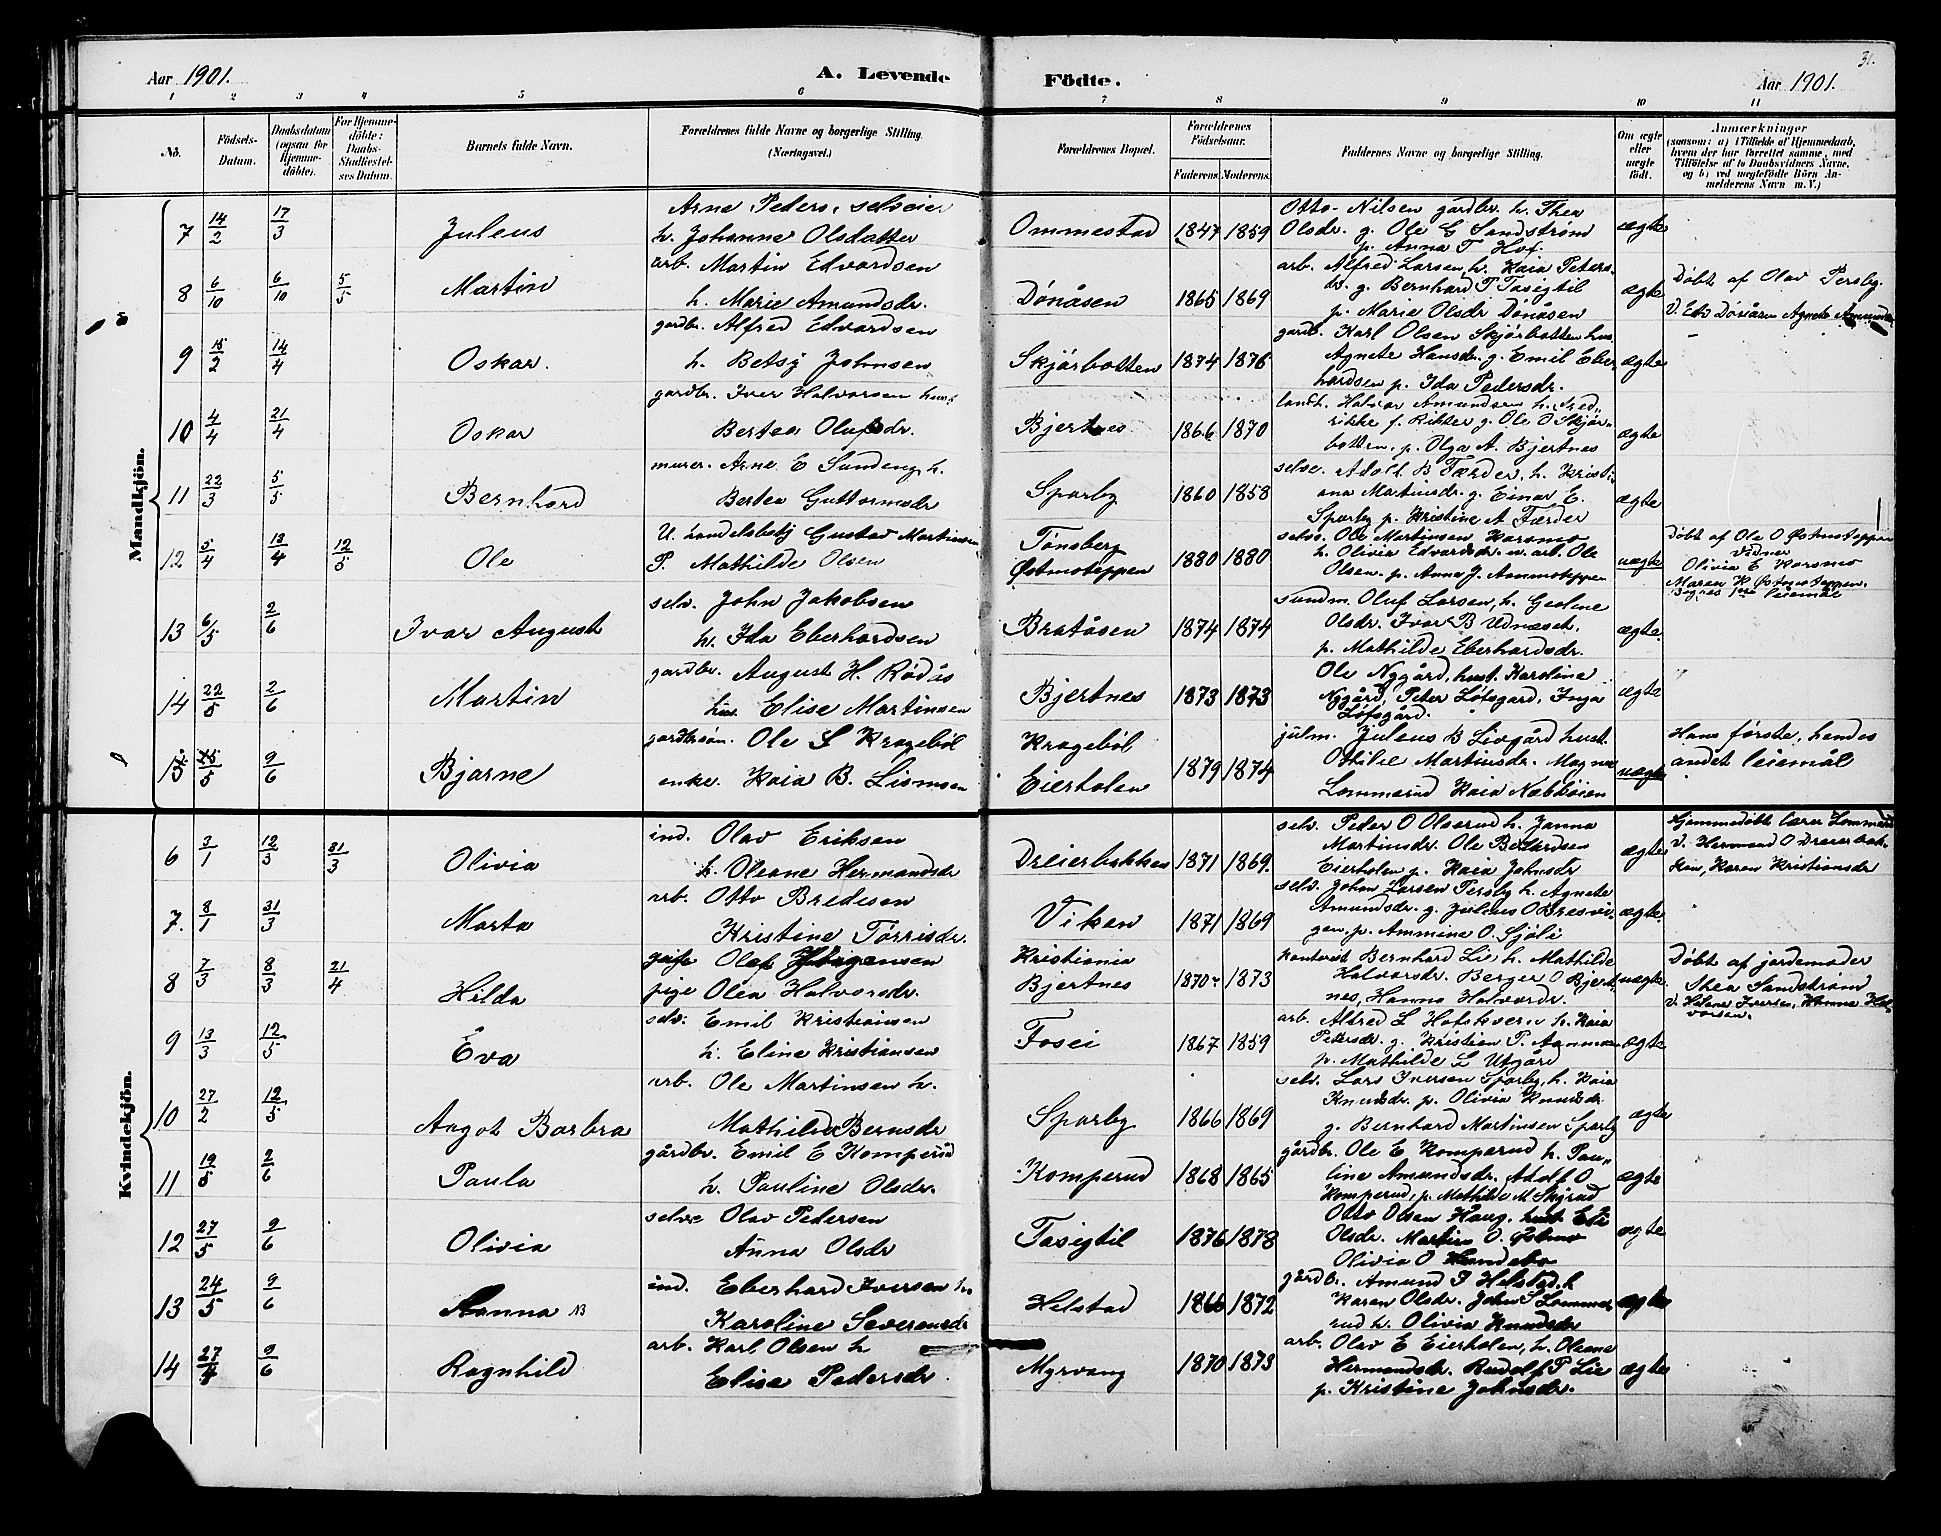 31.
Aar 1901. A. Levende Födte. Aar 1901.
1 2 3 4 5 6 7 8 9 10 11
No. Födsels-Datum. Daabsdatum (ogsaa for Hjemme-döbte). For Hjemme-döbte: Daabs-Stadfæstel-ses Datum. Barnets fulde Navn. Forældrenes fulde Navne og borgerlige Stilling. (Næringsvei.) Forældrenes Bopæl. Forældrenes Födselsaar. Faderens. Moderens. Faddernes Navne og borgerlige Stilling. Om ægte eller uægte födt. Anmærkninger (saasom: a) i Tilfælde af Hjemmedaab, hvem der har forrettet samme, med Tilföielse af to Daabsvidners Navne, og b) ved uægtefödte Börn An-melderens Navn m. V.)
Mandkjön.
7 14/2 17/3 Juleus Arne Peders. selveier
h. Johanne Olsdatter Ommestad 1847 1859 Otto Nilsen gardbr. h. Thea
Olsdr. g. Ole G Sandstrøm
p. Anna T Hof. ægte
8 6/10 6/10 5/5 Martin arb. Martin Edvardsen
h. Marie Amundsdr. Dønåsen 1865 1869 arb. Alfred Larsen, h. Kaia Peters-
dr. g. Bernhard T Tasigtil
p. Marie Olsdr Dønåsen ægte Døbt af Olav Persby.
V. Edv Dønåsen Agnete
9 15/2 14/4 Oskar. gardbr. Alfred Edvardsen
h. Betsy Johnsen Skjørbotten 1874 1876 gardb. Karl Olsen Skjørbotten hus.
Agnete Hansdr. g. Emil Eber
hardsen p. Ida Pedersdr. ægte
10 4/4 21/4 Oskar gardbr. Iver Halvorsen hus
Bertea Olufsdr. Bjertnes 1866 1870 landh. Halvor Amundsen h. Fred-
rikke f. Rikter g. Ole O Skjør-
botten, p. Olga A. Bjertnes ægte
11 22/3 5/5 Bernhard murer. Arne E Sundeng, h.
Bertea Guttormsdr Sparby 1860 1858 selve. Adolt B Færder, h. Kristi-
ana Martinsdr. g. Einar E.
Sparby p. Kristine A Færder ægte
12 5/4 13/4 12/5 Ole U. handelsbetj Gustav Martinsen
P. Mathilde Olsen Tønsberg
Østmoteppen 1880 1880 selve. Ole Martinsen Korsmo
h. Olivia Edvardsdr. u. arb. Ole
Olsen. p. Anna J. uægte Døbt af Ole O Østmoteppen
vidner
Olivia E Korsmo
Maren K Østmoteppen.
Begges 1ste leiemål
13 6/5 2/6 Ivar August selv. John Jakobsen
h. Ida Eberhardsen Bratåsen 1874 1874 sundm. Oluf Larsen, h. Geoline
Olsdr. Ivar B Udnæset.
p. Mathilde Eberhardsdr. ægte.
14 22/5 2/6 Martin gardbr. August H. Rødås
hus. Elise Martinsen Bjertnes 1873 1873 Ole Nygård, hust. Karoline
Nygård, Peter Løfsgard, Inga
Løfsgård. ægte
15 25/5 9/6 Bjarne gardbrsøn. Ole L Kragebøl
enke. Kaia B. Kragebøl
Eierholen 1879 1874 julm. Juleus B Livgård hust.
Othilie Martinsdr. Magnus
Lommerud Kaia Næbbøien uægte Hans første, hendes
andet leiemål
Kvindekjön.
6 3/1 12/3 31/3 Olivia ind. Olav Eriksen
h. Oleane Hermandsdr Dreierbakken 1871 1869. selv. Peder O Olserud h. Janna
Martinsdr. Ole
Eierholen p. Kaia Johnsdr ægte Hjemmedøbt lærer Lommerud
V. Hermand O Dreierbak-
ken, Karen Kristiansdr
7. 8/1 31/3 Marta arb. Otto Bredesen
Kristine Tørrisdr. Viken 1871 1869 selv. Johan Larsen Persby h. Agnete
Amundsdr. g. Juleus O Bresvi-
gen, p. Ammine O. Sjøli ægte.
8 7/3 8/3 21/4 Hilda Olaf Jørgensen
pige Olea Halvorsdr. Kristiania
Bjertnes 1870 1873 kontorist Bernhard Lie, h. Mathilde
Halvorsdr. Berger O Bjert-
nes, Hanna Halvorsdr. uægte. Døbt af jordemoder
Thea Sandstrøm
V. Helene Iversen, Hanna Hal
vorsen.
9 13/3 12/5 Eva selv. Emil Kristiansen
h. Eline Kristiansen Fosei 1867 1859 arb. Alfred L Hofskvern h. Kaia
Pedersdr. g. Kristian P.
p. Mathilde L Utgård ægte
10 27/2 12/5 Angot Barbra arb. Ole Martinsen h.
Mathilde Berntsdr Sparby 1866 1869 selv. Lars Iversen Sparby, h. Kaia
Knudsdr. p. Olivia Knudsdr
g. Bernhard Martinsen Sparby ægte
11 19/5 2/6 Paula gårdbr. Emil E Komperud
h. Pauline Olsdr. Komperud 1868 1865 gårdbr. Ole E Komperud h. Pau-
line Amundsdr. Adolf O
Komperud, p. Mathilde M ægte
12 27/5 9/6 Olivia selve Olav Pedersen
Anna Olsdr Tasigtil 1876 1878 Otto Olsen Haug. hust
Olsdr. Martin O. Østmo
Olivia O ægte
13 24/5 9/6 Hanna NB ind. Eberhard Iversen h.
Karoline Severensdr Helstad 1866 1872 gårdbr. Amund I Helstad, h
Karen Olsdr. John S Lomme
rud h. Olivia Knudsdr ægte
14 27/4 9/6 Ragnhild arb. Karl Olsen h
Elise Pedersdr. Myrvang 1870 1873 arb. Olav E Eierholen, h. Oleane
Hermandsdr. Rudolf P Lie
p. Kristine Johnsdr. ægte